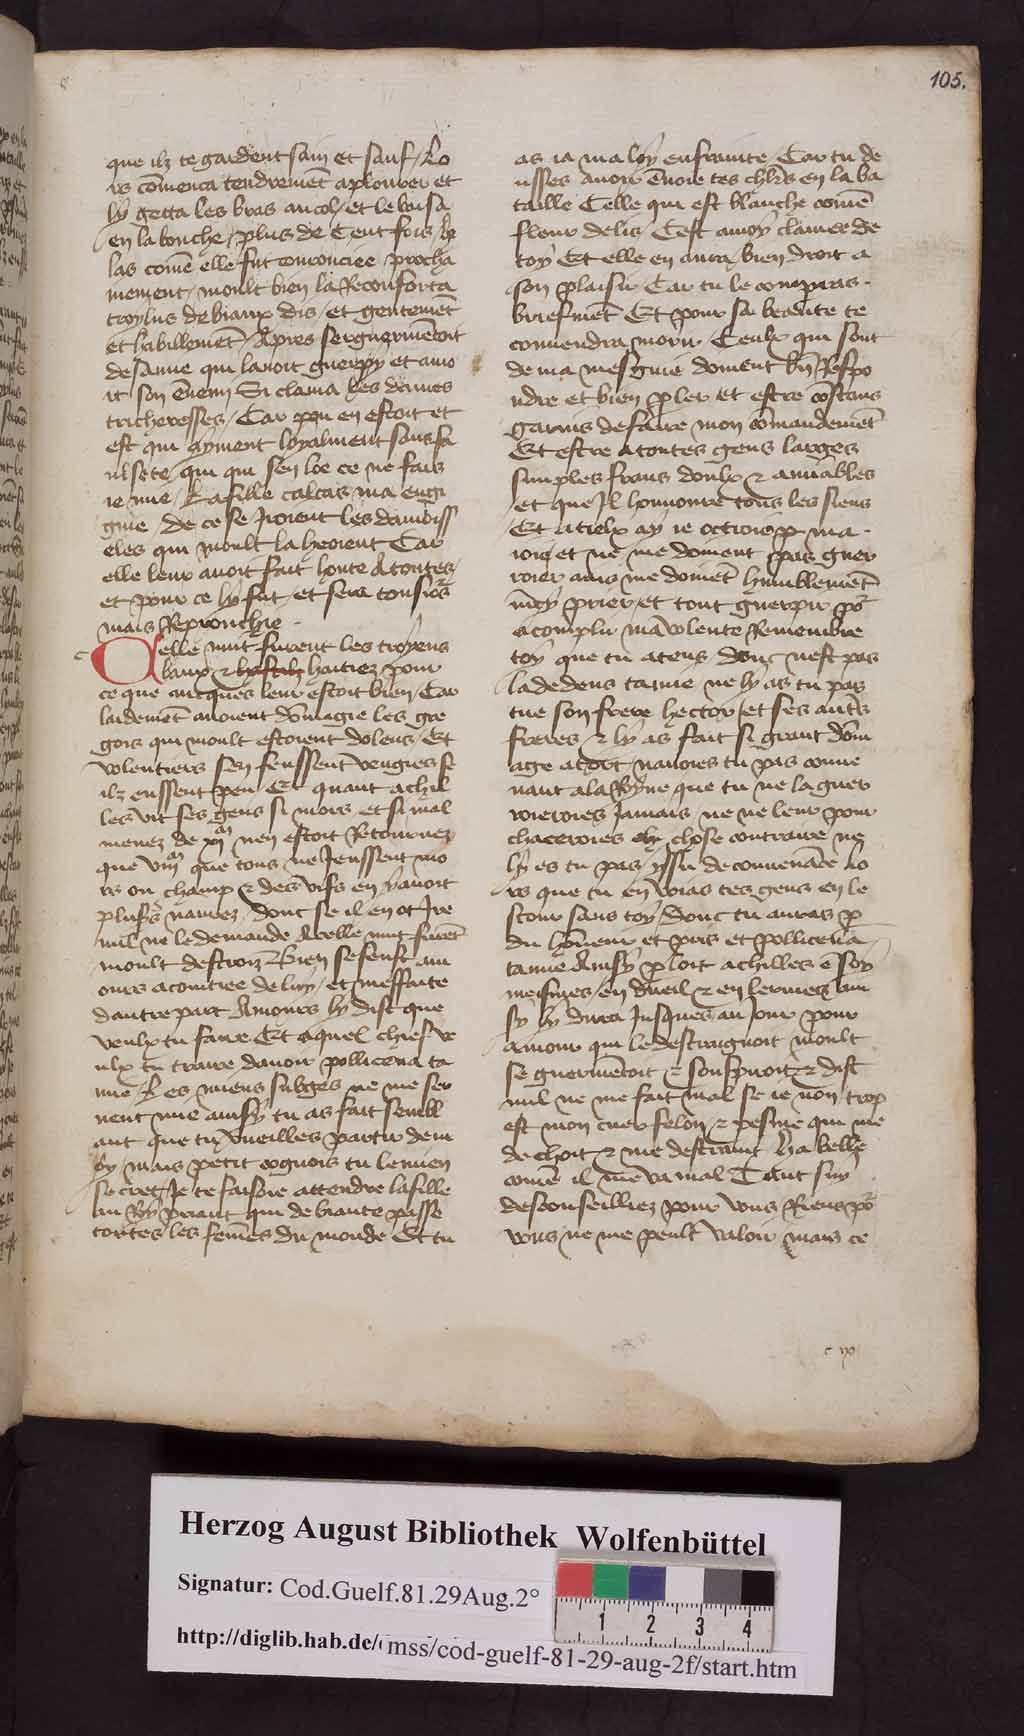 105.
que ilz te gardent sain et sauf / Lo
rs comenca tendrement a plourer et
ly getta les bras au col / et le baisa
en la bouche / plus de Cent fois he
las come elle fut courouciee procha
inement / moult bien la Reconforta
troylus de biaux dis / et gentement
et habillement / Apres se guermentoit
de samie qui lauoit guerpy et amo
it son enemi Si clama les dames
tricheresses / Car pou en estoit et
est qui ayment loyalment sans fa
ulsete qui qui sen loe ce ne fais
ie mie / La fille calcas ma engi
gnie de ce se Jroient les damoiss
eles qui moult la heoient Car
elle leur auoit fait honte A toutes
et pour ce ly fut et sera tousiors
mais Reprouchie
c
A celle nuit furent les troyens
baux & haitiez pour
ce que aucques leur estoit bien / Car
laidement auoient domagie les gre
gois qui moult estoient dolens / Et
volentiers sen feussent vengies se
ilz eussent peu Et quant achil
les vit ses gens si mors et si mal
menez de nen estoit Retournez
que que tous ne Jeussent mo
rs ou champ & des vifs en y auoit
plusrs naurez / dont se il en ot Jre
nul ne le demande A celle nuit furet
moult destroiz Bien se senst am
ours acointiee de luy / et meffaite
dautre part Amours ly dist que
veulx tu faire Et a quel chief ve
ulx tu traire dauoir pollicena ta
mie / Les miens subges ne me ser
uent mie ainsy tu as fait sembl
ant que tu vueilles partir de m
oy mais petit cognois tu le mien
secret Je te faisoie attendre la fille
au Roy priant qui de biaute passe
toutes les femes du monde Et tu
as ia ma loy enfrainte / Car tu de
usses auoir enuoie tes chlrs en la ba
taille Celle qui est blanche come
fleur de lis / Cest a moy clamee de
toy Et elle en aura bien droit a
son plaisir Car tu le comparas
briefmet Et pour sa beaute te
conuendra morir / Ceulx qui sont
de ma mesgnie doiuent bn Respo
ndre et bien pler et estre costans
garnis de faire mon comandemet
Et estre a toutes gens larges
simples frans doulx & amiables
et que Jl honnoure tous les siens
Et a tielx ay ie octroie ma
ioie et ne me doiuent pas guer
roier ains me doiuet humblemet
moy prier et tout guerpir por
acomplir ma volente Remembre
toy que tu atens / donc nest pas
la dedens tamie ne ly as tu pas
tue son frere hector / et ses autrs
freres & ly as fait si grant dom
age a tort / nauoies tu pas conue
nant a la Royne que tu ne la guer
roieroies Jamais / ne ne leur pour
chaceroies chose contraire ne
ly es tu pas yssu de conuenace lo
rs que tu en voias tes gens en le
stour sans toy / donc tu auras p
du honneur et pris et pollicena
tamie Ainsy ploit achilles e soy
mesmes / en dueil & en lermes au
sy ly dura Jusques au Jour pour
amour qui le destraignoit moult
se guermentoit & souspiroit & dist
nul ne me fait mal se ie non / trop
est mon cuer felon & pesme qui me
dechoit & me destraint / ha belle
come il me va mal Tant suy
desconseilliez pour vous Riens por
vous ne me peult valoir mais ce
Herzog August Bibliothek Wolfenbüttel
Signatur: Cod.Guelf.81.29Aug.2°
http://diglib.hab.de/ mss/cod-guelf-81-29-aug-2f/start.htm
1 2 3 4